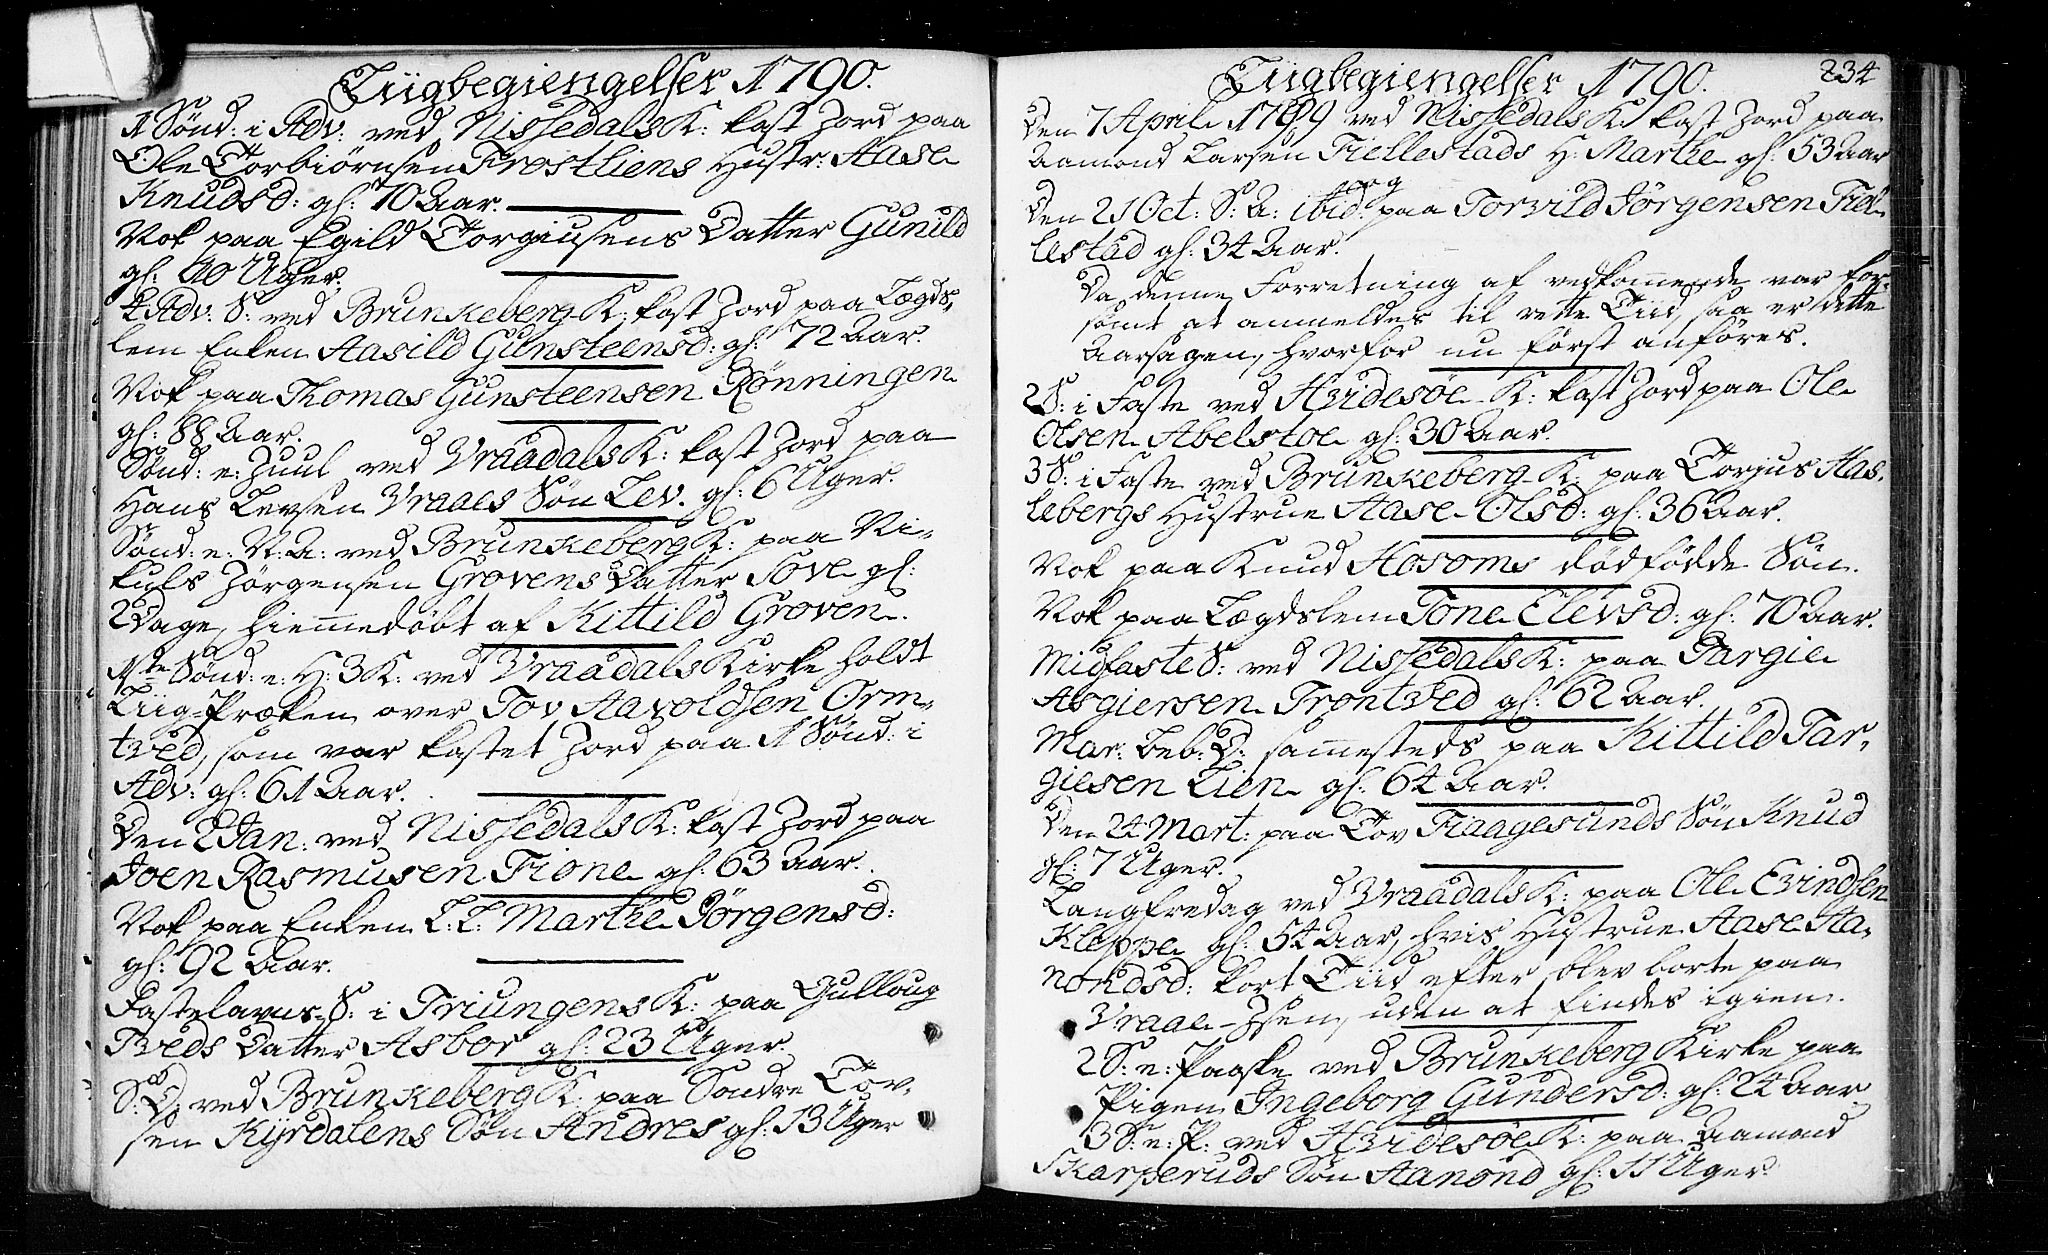 Liigbegiengelser 1790.
1 Sönd: i Adv: ved Nissedals K: kast Jord paa
Ole Torbiörnsen Frostliens Hustr: Aase
Knudsd: gl: 70 Aar.
Nok paa Egild Torgiusens Datter Gunild
gl: 40 Uger.
4 Adv: S: ved Brunkeberg K: kast Jord paa Lægds-
lem Enken Aasild Gunsteensd: gl: 72 Aar.
Nok paa Thomas Gunsteensen Rönningen
gl: 88 Aar.
Sönd: e: Juul ved Vraadals K: kast Jord paa
Hans Levsen Vraaes Sön Lev. gl: 6 Uger.
Sönd: e: N: A: ved Brunkeberg K: paa Ni-
kuls Jörgensen Grovens Datter Sove gl:
2 Dage, hiemmedöbt af Kittild Groven.
1ste Sönd: e: H: 3 K: ved Vraadals Kirke holdt
Liig-Præken over Tov Aavoldsen Orm-
tved, som var kastet Jord paa 1 Sönd: i
Adv: gl: 61 Aar.
Den 2 Jan: ved Nissedals K: kast Jord paa
Joen Rasmusen Fione gl: 63 Aar.
Nok paa Enken L: L: Marthe Jörgensd:
gl: 92 Aar.
Fastelavns S: i Triungens K: paa Gulloug
Tveds Datter Asbor gl: 23 Uger.
S: D: ved Brunkeberg K: paa Sondre Tov-
sen Kyrdalens Sön Andres gl: 13 Uger
Liigbegiengelser 1790. 234
Den 7 April 1789 ved Nissedals K: kast Jord paa
Aamond Larsen Fiellestads H: Marthe gl: 53 Aar
og
Den 21 Oct: S: A: ibid: paa Torvild Jörgensen Fiel-
lestad gl: 34 Aar.
Da denne Forretning af vedkommende var for-
sömt at anmeldes til rette Tiid, saa er dette
Aarsagen, hvorfor nu först anföres.
2 S: i Faste ved Hvidesöe K: kast Jord paa Ole
Olsen Abelstoe gl: 30 Aar.
3 S: i Faste ved Brunkeberg K: paa Torjus Has-
lebergs Hustrue Aase Olsd: gl: 36 Aar.
Nok paa Knud Hosoms dödfödde Sön.
Nok paa Lægdslem Tone Elevsd: gl: 70 Aar.
Midfaste S: ved Nissedals K: paa Targie
Asgiersen Trontved gl: 62 Aar.
Mar: beb: D: sammesteds paa Kittild Tar-
giesen Lien gl: 64 Aar.
Den 24 Mart: paa Tov Fraagesunds Sön Knud
gl: 7 Uger.
Langfredag ved Vraadals K: paa Ole Evindsen
Kleppe gl: 54 Aar, hvis Hustrue Aase Aa-
nondsd: kort Tiid efter blev borte paa
Vraae-Isen, uden at findes igien.
2 S: e: Paaske ved Brunkeberg Kirke paa
Pigen Ingeborg Gundersd: gl: 24 Aar.
3 S: e: P: ved Hvidesöe K: paa Aamond
Skarperuds Sön Aanond gl: 11 Uger.